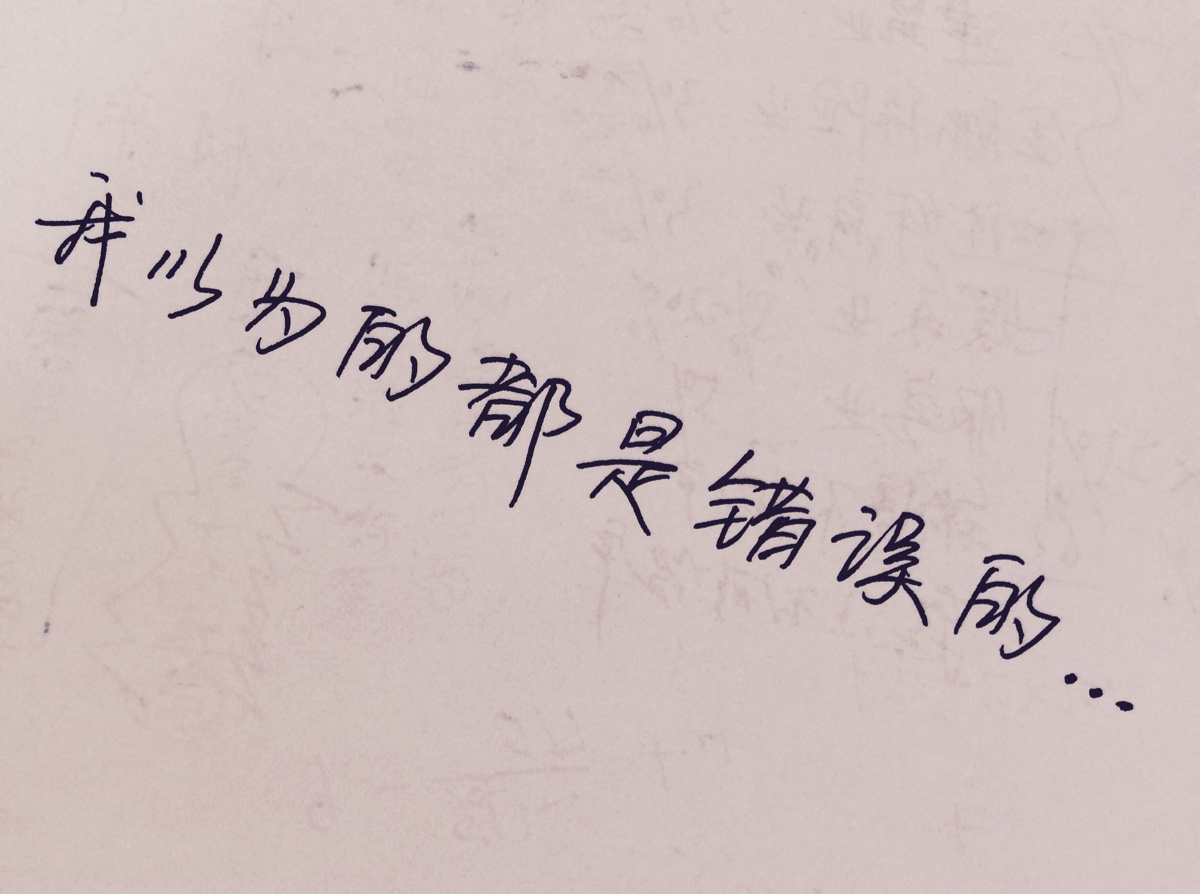 我以为的都是错误的...